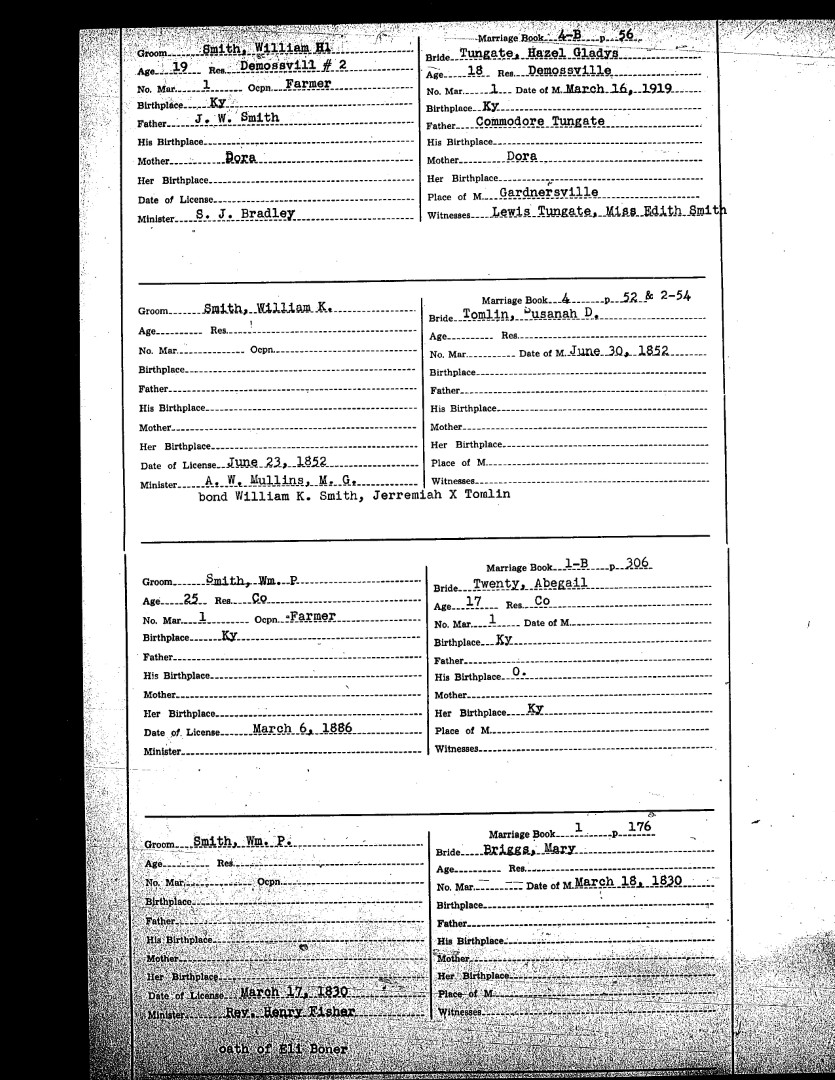 Groom Smith, William Hl
Age 19 Res. Demossvill # 2
No. Mar. 1 Ocpn. Farmer
Birthplace Ky
Father J. W. Smith
His Birthplace
Mother Dora
Her Birthplace
Date of License
Minister S. J. Bradley
Marriage Book 4-B p. 56
Bride Tungate, Hazel Gladys
Age 18 Res. Demossville
No. Mar. 1 Date of M. March 16, 1919
Birthplace Ky
Father Commodore Tungate
His Birthplace
Mother Dora
Her Birthplace
Place of M. Gardnersville
Witnesses Lewis Tungate, Miss Edith Smith
Groom Smith, William K.
Age Res.
No. Mar. Ocpn.
Birthplace
Father
His Birthplace
Mother
Her Birthplace
Date of License June 23, 1852
Minister A. W. Mullins, M. G.
bond William K. Smith, Jerremiah X Tomlin
Marriage Book 4 p. 52 & 2-54
Bride Tomlin, Susanah D.
Age Res.
No. Mar. Date of M. June 30, 1852
Birthplace
Father
His Birthplace
Mother
Her Birthplace
Place of M.
Witnesses
Groom Smith, Wm. P
Age 25 Res. Co
No. Mar. 1 Ocpn. -Farmer
Birthplace Ky
Father
His Birthplace
Mother
Her Birthplace
Date of License March 6, 1886
Minister
Marriage Book 1-B p. 306
Bride Twenty, Abegail
Age 17 Res. Co
No. Mar. 1 Date of M.
Birthplace Ky
Father
His Birthplace O.
Mother
Her Birthplace Ky
Place of M.
Witnesses
Groom Smith, Wm. P.
Age Res.
No. Mar. Ocpn.
Birthplace
Father
His Birthplace
Mother
Her Birthplace
Date of License March 17, 1830
Minister Rev. Henry Fisher
oath of Eli Boner
Marriage Book 1 p. 176
Bride Briggs, Mary
Age Res.
No. Mar. Date of M. March 18, 1830
Birthplace
Father
His Birthplace
Mother
Her Birthplace
Place of M.
Witnesses